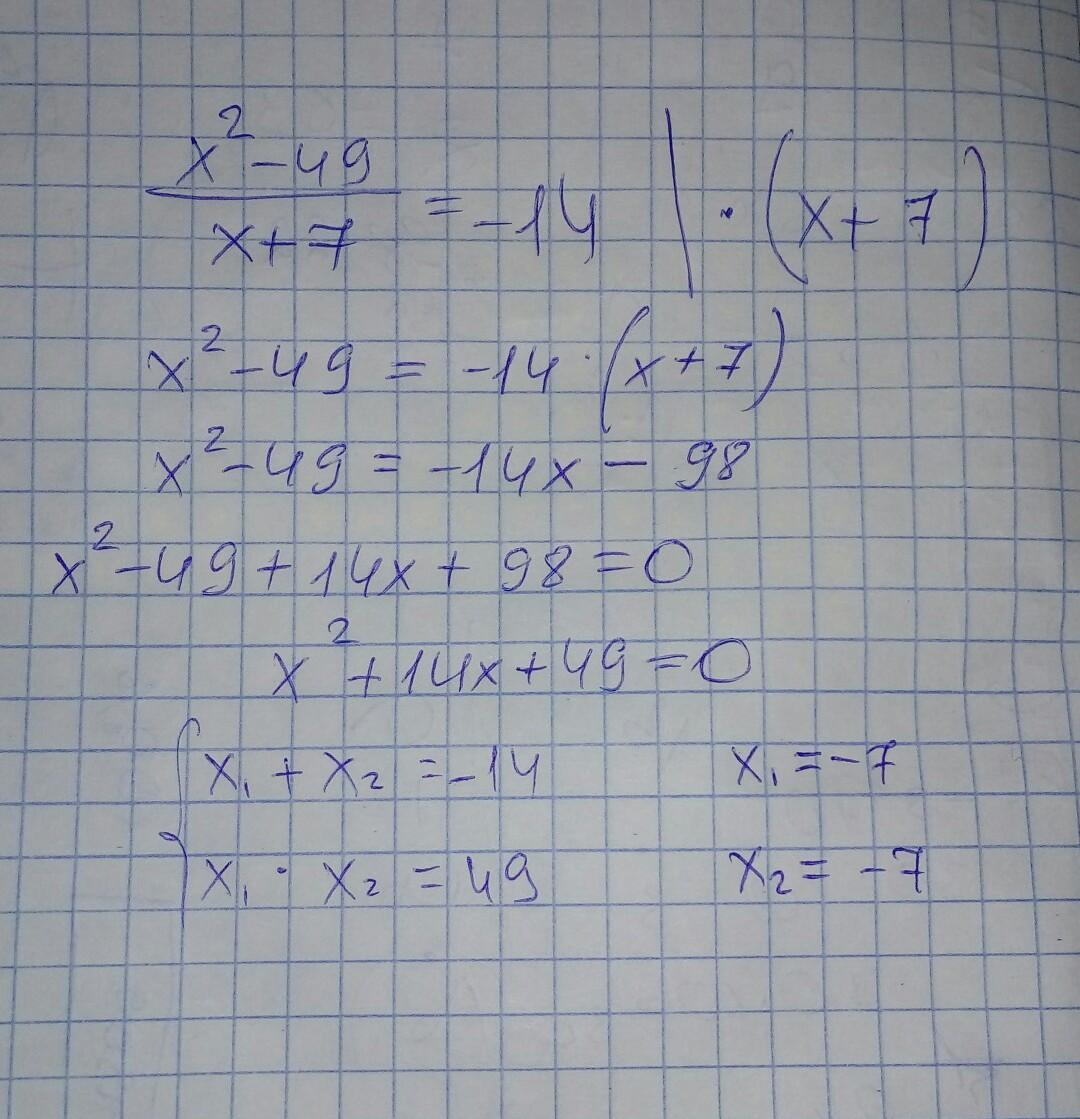 x²-49/x+7 = -14 | · (x+7)
x²-49 = -14·(x+7)
x²-49 = -14x - 98
x²-49+14x+98=0
x²+14x+49=0
{x₁ + x₂ = -14 x₁ = -7
x₁ · x₂ = 49 x₂ = -7